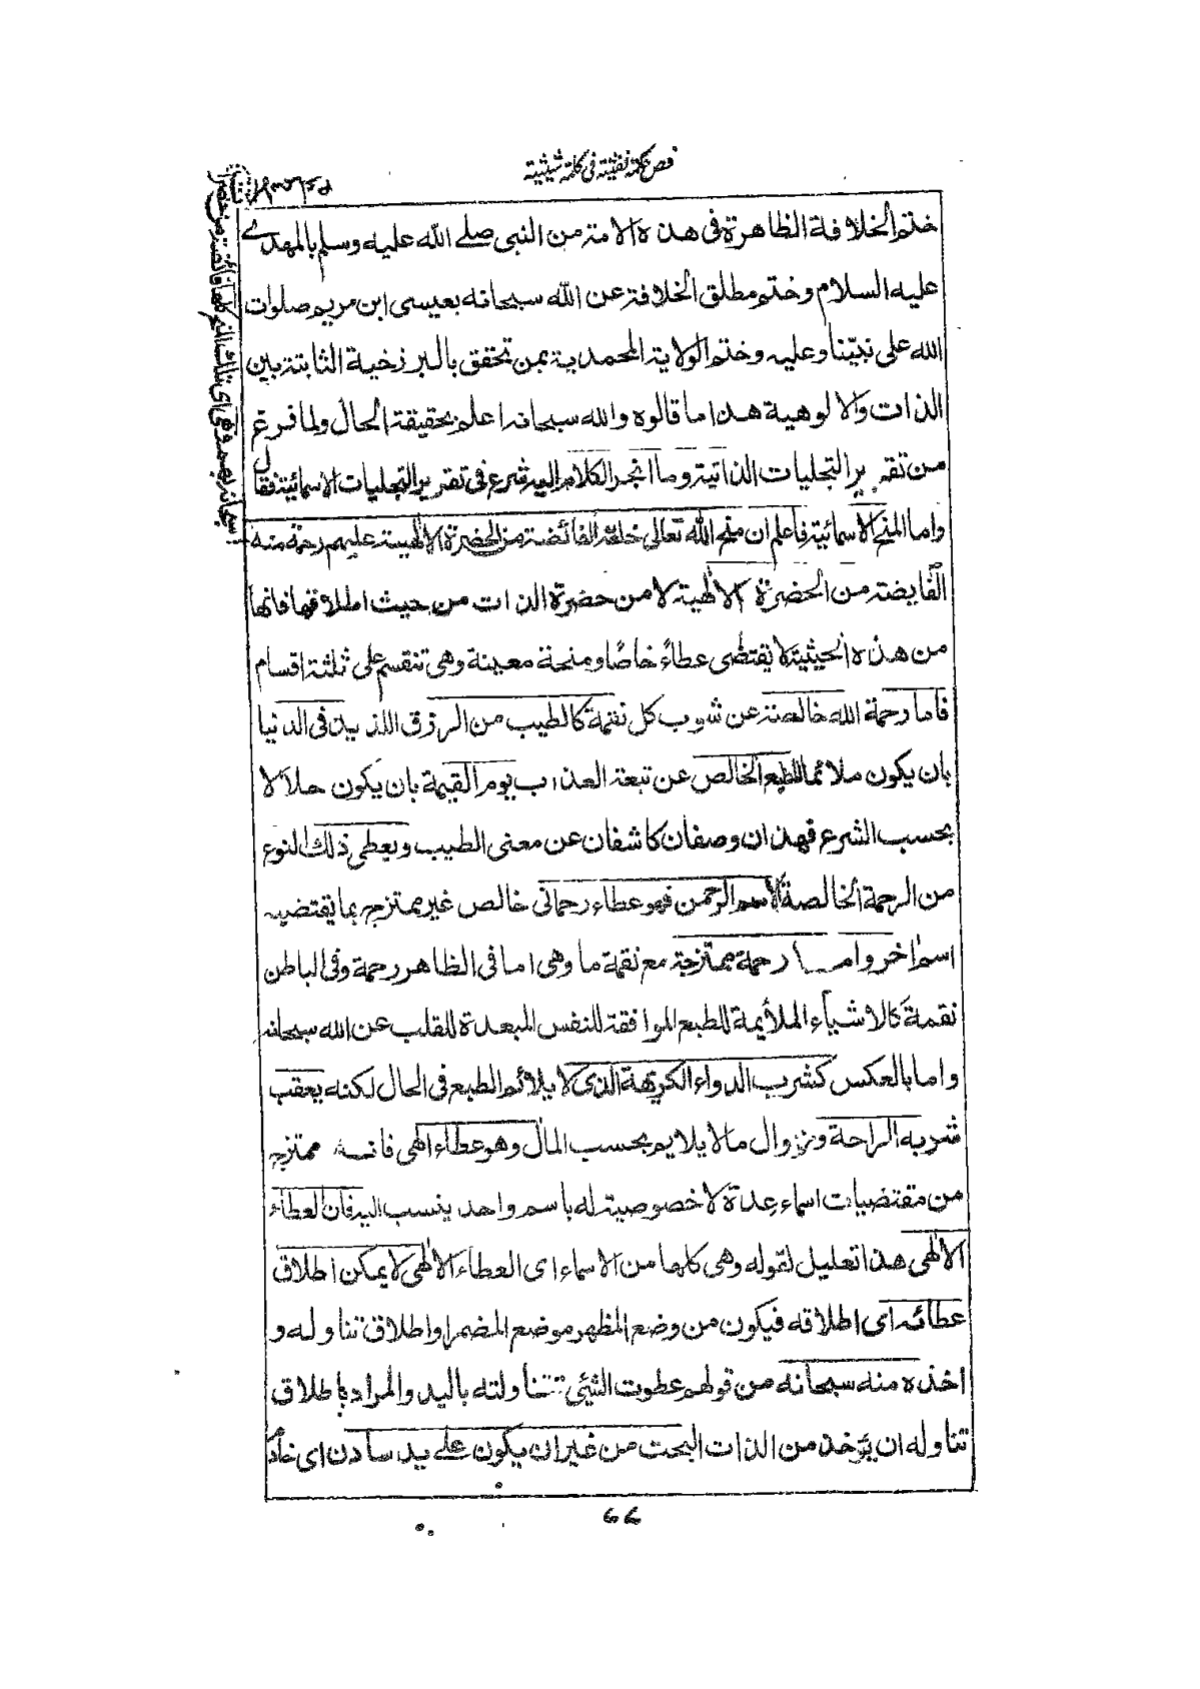 فص حكمة نفثية فى كلمة شيثية
ختم الخلافة الظاهرة فى هذه الامة من النبى صلے الله عليه وسلم بالمهدے
عليه السلام وختم مطلق الخلافة عن الله سبحانه بعيسى ابن مريم صلوات
الله على نبيّنا وعليه وختم الولاية المحمدية بمن تحقق بالبرزخية الثابتة بين
الذات والالوهية هذا ما قالوه والله سبحانه اعلم بحقيقة الحال ولما فرغ
من تقرير التجليات الذاتية وما انجر الكلام اليه شرع فى تقرير التجليات الاسمائية فقال
واما المنح الاسمائية فاعلم ان منح الله تعالى خلقه الفائضة من الحضرة الالٰهية عليهم رحمة منه
الفايضة من الحضرة الالٰهية لا من حضرة الذات من حيث اطلاقها فانها
من هذه الحيثية لا يقتضى عطاءً خاصًا ومنحة معينة وهى تنقسم على ثلثة اقسام
فاما رحمة الله خالصة عن شوب كل نقمة كالطيب من الرزق اللذيذ فى الدنيا
بان يكون ملائما للطبع الخالص عن تبعة العذاب يوم القيمة بان يكون حلالا
بحسب الشرع فهذان وصفان كاشفان عن معنى الطيب ويعطى ذلك النوع
من الرحمة الخالصة الاسم الرحمن فهو عطاء رحمانى خالص غير ممتزج بما يقتضيه
اسم اٰخر واما رحمة ممتزجة مع نقمة ما وهى اما فى الظاهر رحمة وفى الباطن
نقمة كالاشياء الملأيمة للطبع الموافقة للنفس المبعدة للقلب عن الله سبحانه
واما بالعكس كشرب الدواء الكريهة الذى لا يلائم الطبع فى الحال لكنه يعقب
شربه الراحة وزوال مالا يلايم بحسب المآل وهو عطاء الٰهى فانه ممتزج
من مقتضيات اسماء عدة لا خصوصية له باسم واحد ينسب اليه فان العطاء
الالٰهى هذا تعليل لقوله وهى كلها من الاسماء اى العطاء الالٰهى لا يمكن اطلاق
عطائه اى اطلاقه فيكون من وضع المظهر موضع المضمر او اطلاق تناوله و
اخذه منه سبحانه من قولهم عطوت الشئى تناولته باليد والمراد باطلاق
تناوله ان يؤخذ من الذات البحت من غير ان يكون علے يد سادن اى خادم